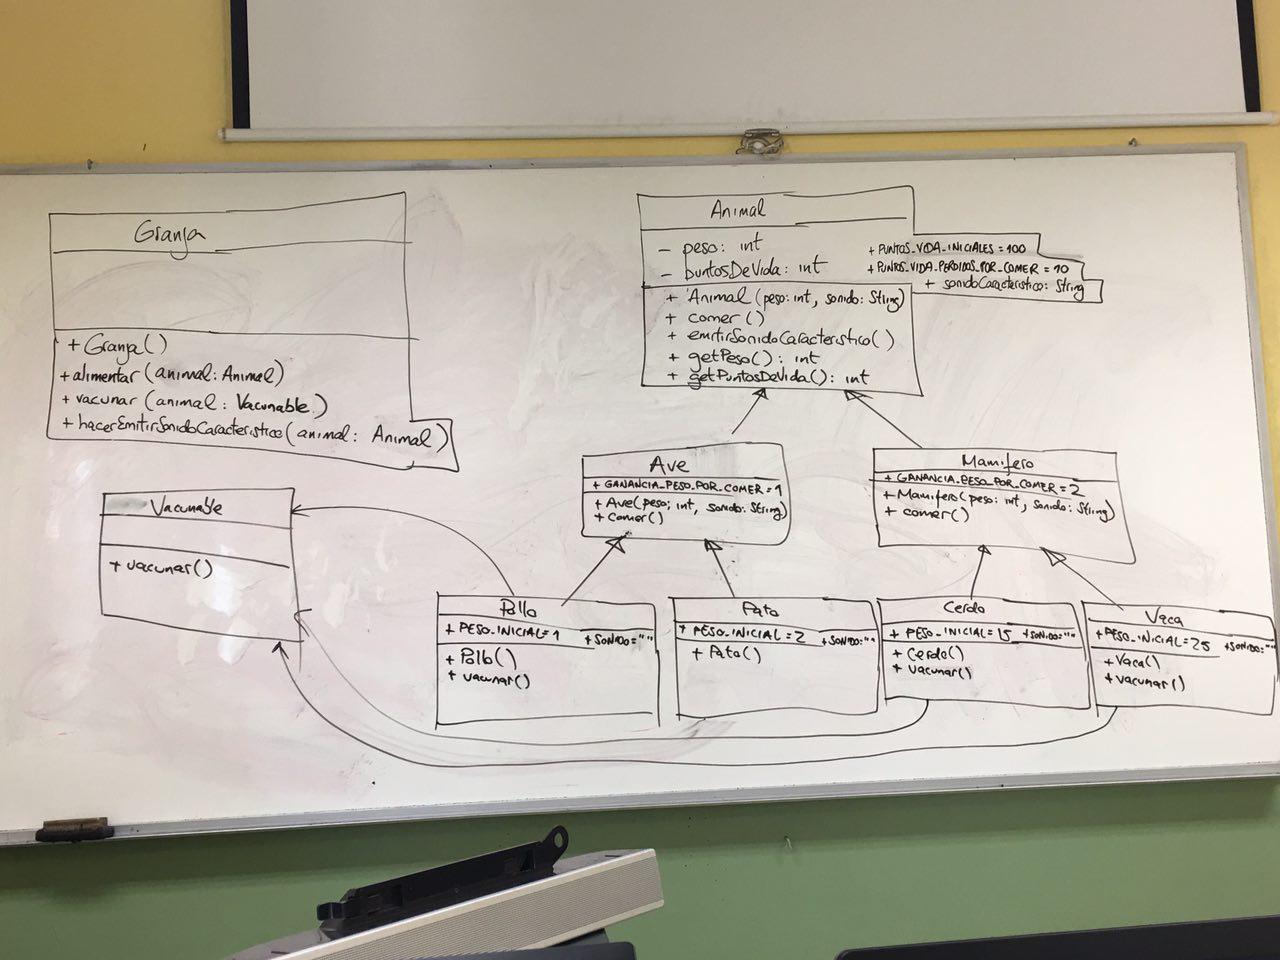 Granja
+ Granja()
+ alimentar (animal: Animal)
+ vacunar (animal: Vacunable)
+ hacerEmitirSonidoCaracteristico (animal: Animal)
Vacunable
+ vacunar()
Animal
- peso: int
- puntosDeVida: int
+ PUNTOS_VIDA_INICIALES = 100
+ PUNTOS_VIDA_PERDIDOS_POR_COMER = 10
+ sonidoCaracteristico: String
+ Animal (peso: int, sonido: String)
+ comer ()
+ emitirSonidoCaracteristico()
+ getPeso(): int
+ getPuntosDeVida(): int
Ave
+ GANANCIA_PESO_POR_COMER = 1
+ Ave(peso: int, sonido: String)
+ comer()
Mamifero
+ GANANCIA_PESO_POR_COMER = 2
+ Mamifero(peso: int, sonido: String)
+ comer()
Pollo
+ PESO_INICIAL = 1 +SONIDO=""
+ Pollo()
+ vacunar()
Pato
+ PESO_INICIAL = 2 +SONIDO=""
+ Pato()
Cerdo
+ PESO_INICIAL = 15 +SONIDO=""
+ Cerdo()
+ vacunar()
Vaca
+ PESO_INICIAL = 25 +SONIDO=""
+ Vaca()
+ vacunar()